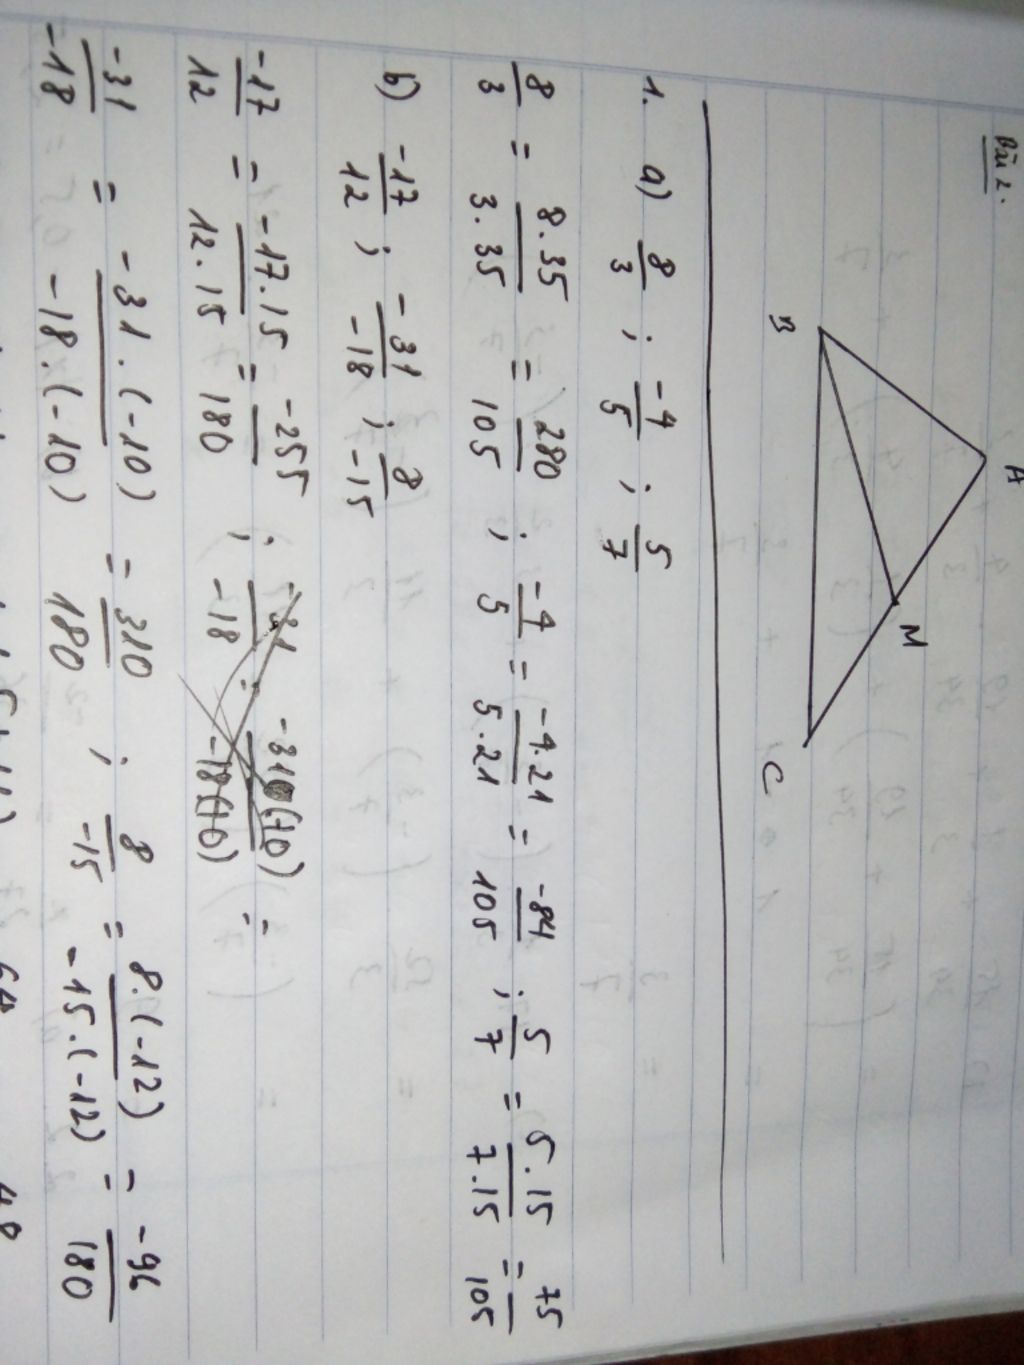 Bài 2.
A
B
M
C
1. a) 8/3 ; -4/5 ; 5/7
8/3 = 8.35/3.35 = 280/105 ; -4/5 = -4.21/5.21 = -84/105 ; 5/7 = 5.15/7.15 = 75/105
b) -17/12 ; -31/-18 ; 8/-15
-17/12 = -17.15/12.15 = -255/180 ;
-31/-18 = -31.(-10)/-18.(-10) = 310/180 ; 8/-15 = 8.(-12)/-15.(-12) = -96/180